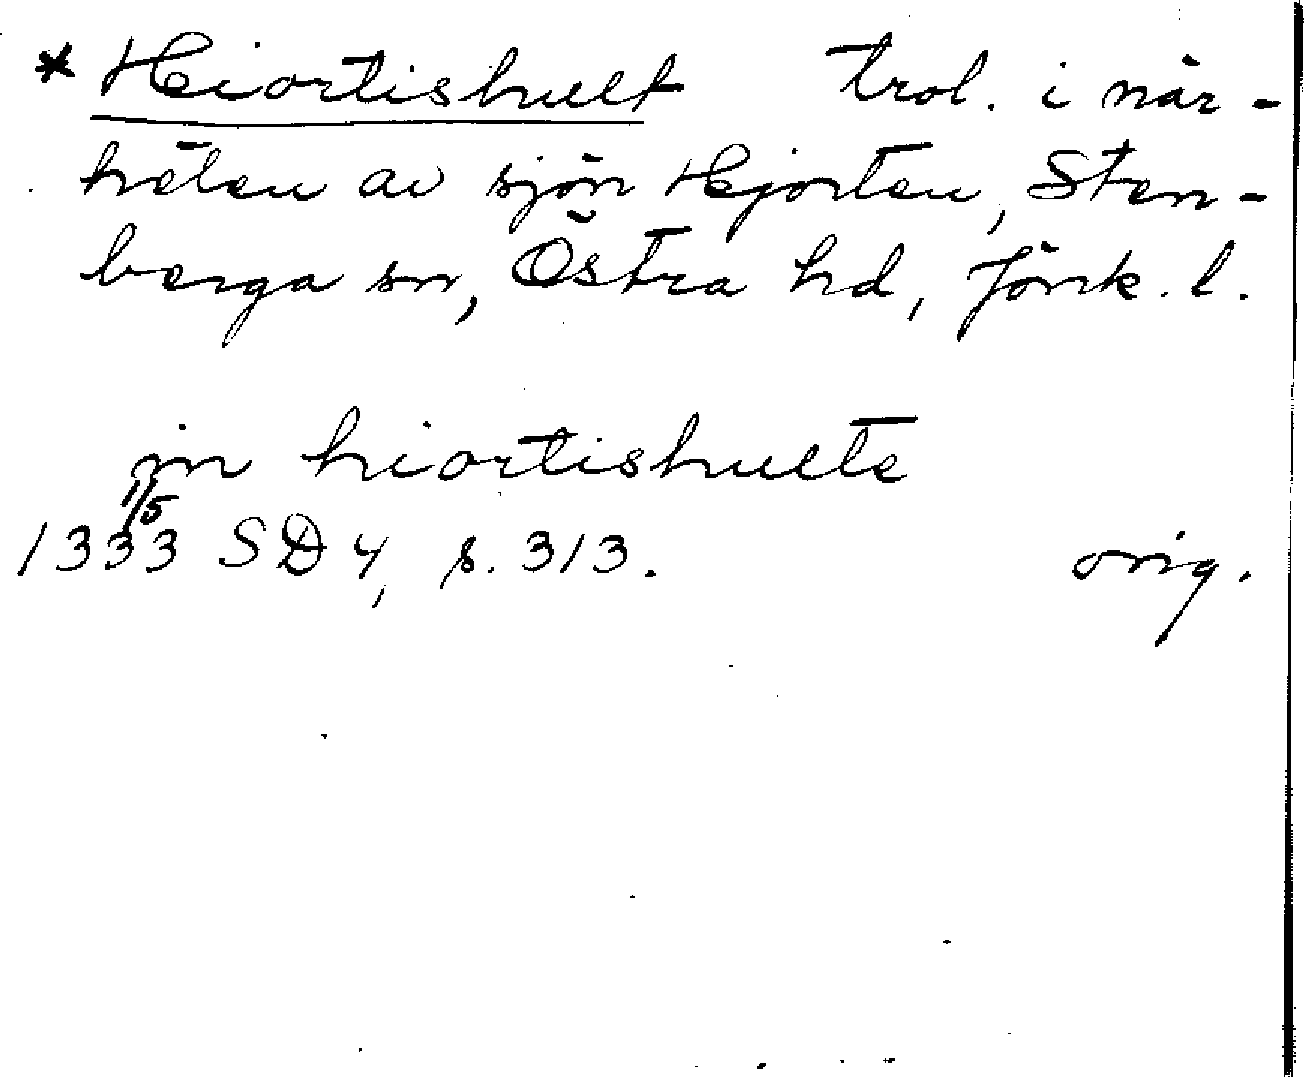 * Hiortishult trol. i när-
heten av sjön Hjorten, Sten-
berga sn, Östra hd, Jönk. l.
in hiortishulte
1333 1/5 SD 4, s. 313. orig.